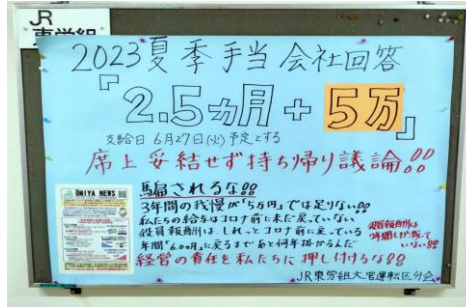 JR
東労組
2023夏季手当 会社回答
「2.5ヵ月+5万」
支給日 6月27日(火)予定とする
席上妥結せず持ち帰り議論!!
OMIYA NEWS
騙されるな!!
3年間の我慢が「5万円」では足りない!!
私たちの給与はコロナ前に未だ戻っていない
役員報酬は、しれっとコロナ前に戻っている
年間「6.00ヵ月」に戻るまであと何年掛かるんだ
役員報酬は
2年間しか減って
いない!!
経営の責任を私たちに押し付けるな!!
JR東労組大宮運転区分会